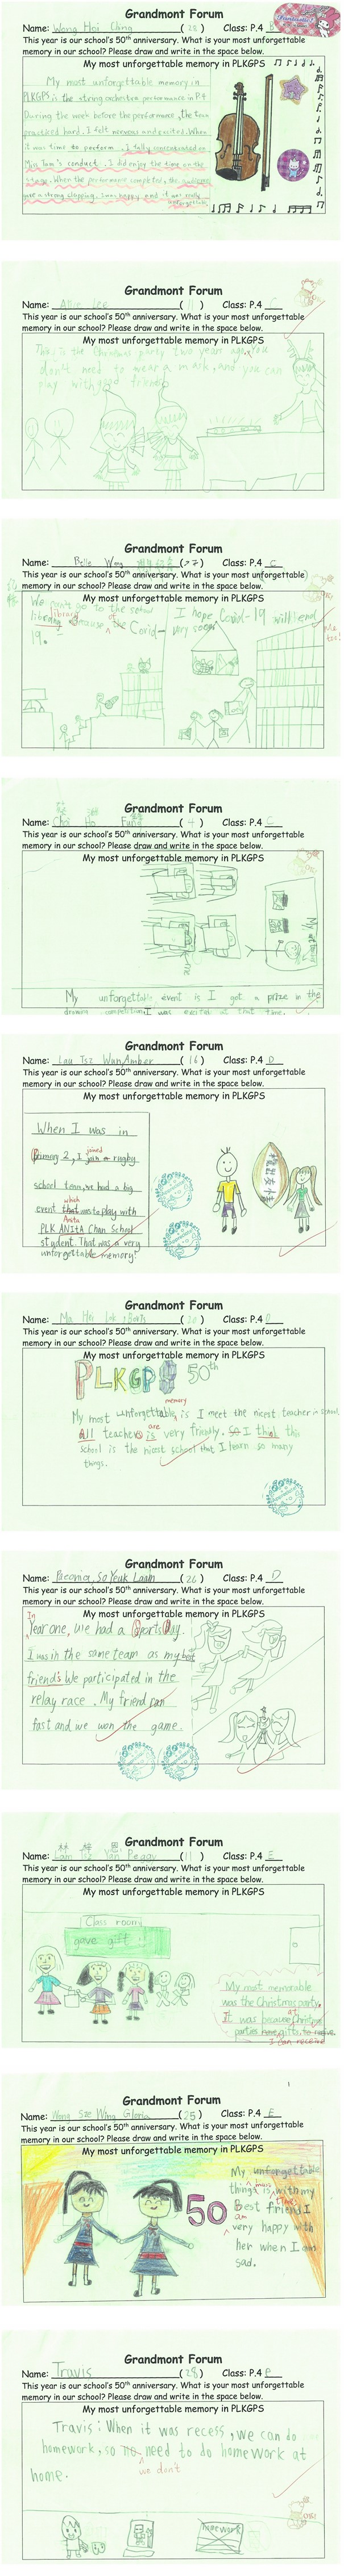 Grandmont Forum
Name: Wong Hoi Ching (28) Class: P.4
This year is our school's 50th anniversary. What is your most unforgettable
memory in our school? Please draw and write in the space below.
My most unforgettable memory in PLKGPS
My most unforgettable memory in
PLKGPS is the string orchestra performance in P.4
During the week before the performance, the team
practiced hard. I felt nervous and excited. When
it was time to perform, I fully concentrated on
Miss Tam's conduct. I did enjoy the time on the
stage. When the performance completed, the audience
gave a strong clapping. I was happy and it was really
unforgettable.
Grandmont Forum
Name: Lee (11) Class: P.4 C
This year is our school's 50th anniversary. What is your most unforgettable
memory in our school? Please draw and write in the space below.
My most unforgettable memory in PLKGPS
This is the Christmas party two years ago. You
don't need to wear a mask, and you can
play with good friends
Grandmont Forum
Name: Belle Wong (27) Class: P.4 C
This year is our school's 50th anniversary. What is your most unforgettable
memory in our school? Please draw and write in the space below.
My most unforgettable memory in PLKGPS
We can't go to the school
library
library because of the Covid-
19.
I hope Covid-19 will end
very soon
Me too!
Grandmont Forum
Name: Choi Ho Fung (4) Class: P.4 C
This year is our school's 50th anniversary. What is your most unforgettable
memory in our school? Please draw and write in the space below.
My most unforgettable memory in PLKGPS
me
My unforgettable event is I got a prize in the
drawing competition. I was excited at that time.
Grandmont Forum
Name: Lau Tsz Wan Amber (16) Class: P.4 D
This year is our school's 50th anniversary. What is your most unforgettable
memory in our school? Please draw and write in the space below.
My most unforgettable memory in PLKGPS
When I was in
Primary 2, I join a rugby
joined
school team, we had a big
which
event that was to play with
Anita
PLK ANITA Chan School
student. That was a very
unforgettable memory!
Grandmont Forum
Name: Ma Hoi Lok (20) Class: P.4 D
This year is our school's 50th anniversary. What is your most unforgettable
memory in our school? Please draw and write in the space below.
My most unforgettable memory in PLKGPS
PLKGPS 50th
memory
My most unforgettable is I meet the nicest teacher in school.
are
All teachers is very friendly. So I think this
school is the nicest school that I learn so many
things.
Grandmont Forum
Name: Paeonia, So Yeuk Laam (26) Class: P.4 D
This year is our school's 50th anniversary. What is your most unforgettable
memory in our school? Please draw and write in the space below.
My most unforgettable memory in PLKGPS
In
Year one, we had a Sports Day.
I was in the same team as my best
friends. We participated in the
relay race. My friend ran
fast and we won the game.
Grandmont Forum
Name: Lam Tsz Yan Peggy (11) Class: P.4 E
This year is our school's 50th anniversary. What is your most unforgettable
memory in our school? Please draw and write in the space below.
My most unforgettable memory in PLKGPS
Class room
gave gift
My most memorable
was the Christmas party.
at
It was because Christmas
parties have gifts to receive
I can receive
Grandmont Forum
Name: Wong Sze Wing Gloria (25) Class: P.4 E
This year is our school's 50th anniversary. What is your most unforgettable
memory in our school? Please draw and write in the space below.
My most unforgettable memory in PLKGPS
50
My unforgettable
things is with my
best friend I
am
very happy with
her when I am
sad.
Grandmont Forum
Name: Travis (28) Class: P.4
This year is our school's 50th anniversary. What is your most unforgettable
memory in our school? Please draw and write in the space below.
My most unforgettable memory in PLKGPS
Travis: When it was recess, we can do
homework, so no need to do homework at
we don't
home.